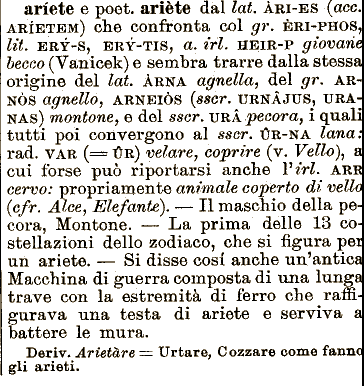 aríete e poet. ariète dal lat. ÀRI-ES (acc.
ARÍETEM) che confronta col gr. ÈRI-PHOS,
lit. ERÝ-S, ERÝ-TIS, a. irl. HEIR-P giovane
becco (Vanicek) e sembra trarre dalla stessa
origine del lat. ÀRNA agnella, del gr. AR-
NÒS agnello, ARNEIÒS (sscr. URNÂJUS, URA-
NAS) montone, e del sscr. URÂ pecora, i quali
tutti poi convergono al sscr. ÛR-NA lana:
rad. VAR (= ÛR) velare, coprire (v. Vello), a
cui forse può riportarsi anche l'irl. ARR
cervo: propriamente animale coperto di vello
(cfr. Alce, Elefante). — Il maschio della pe-
cora, Montone. — La prima delle 13 co-
stellazioni dello zodiaco, che si figura per
un ariete. — Si disse cosí anche un'antica
Macchina di guerra composta di una lunga
trave con la estremità di ferro che raffi-
gurava una testa di ariete e serviva a
battere le mura.
Deriv. Arietàre = Urtare, Cozzare come fanno
gli arieti.